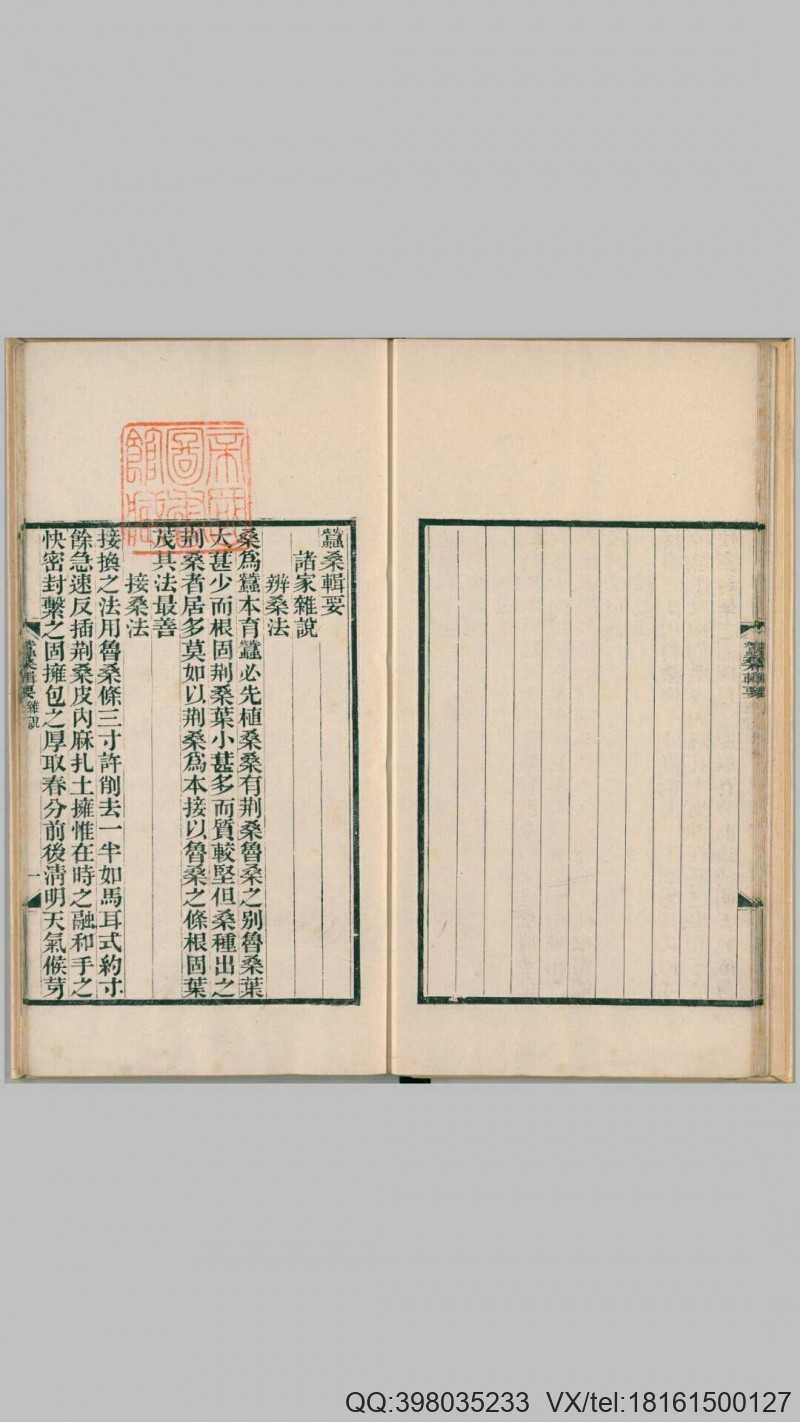 蠶桑輯要
諸家雜說
辨桑法
桑爲蠶本育蠶必先植桑桑有荆桑魯桑之別魯桑葉
大甚少而根固荆桑葉小甚多而質較堅但桑種出之
荆桑者居多莫如以荆桑爲本接以魯桑之條根固葉
茂其法最善
接桑法
接換之法用魯桑條三寸許削去一半如馬耳式約寸
餘急速反插荆桑皮內麻扎土擁惟在時之融和手之
快密封繫之固擁包之厚取春分前後淸明天氣候芽
蠶桑輯要 雜說 一
QQ:398035233 VX/tel:18161500127